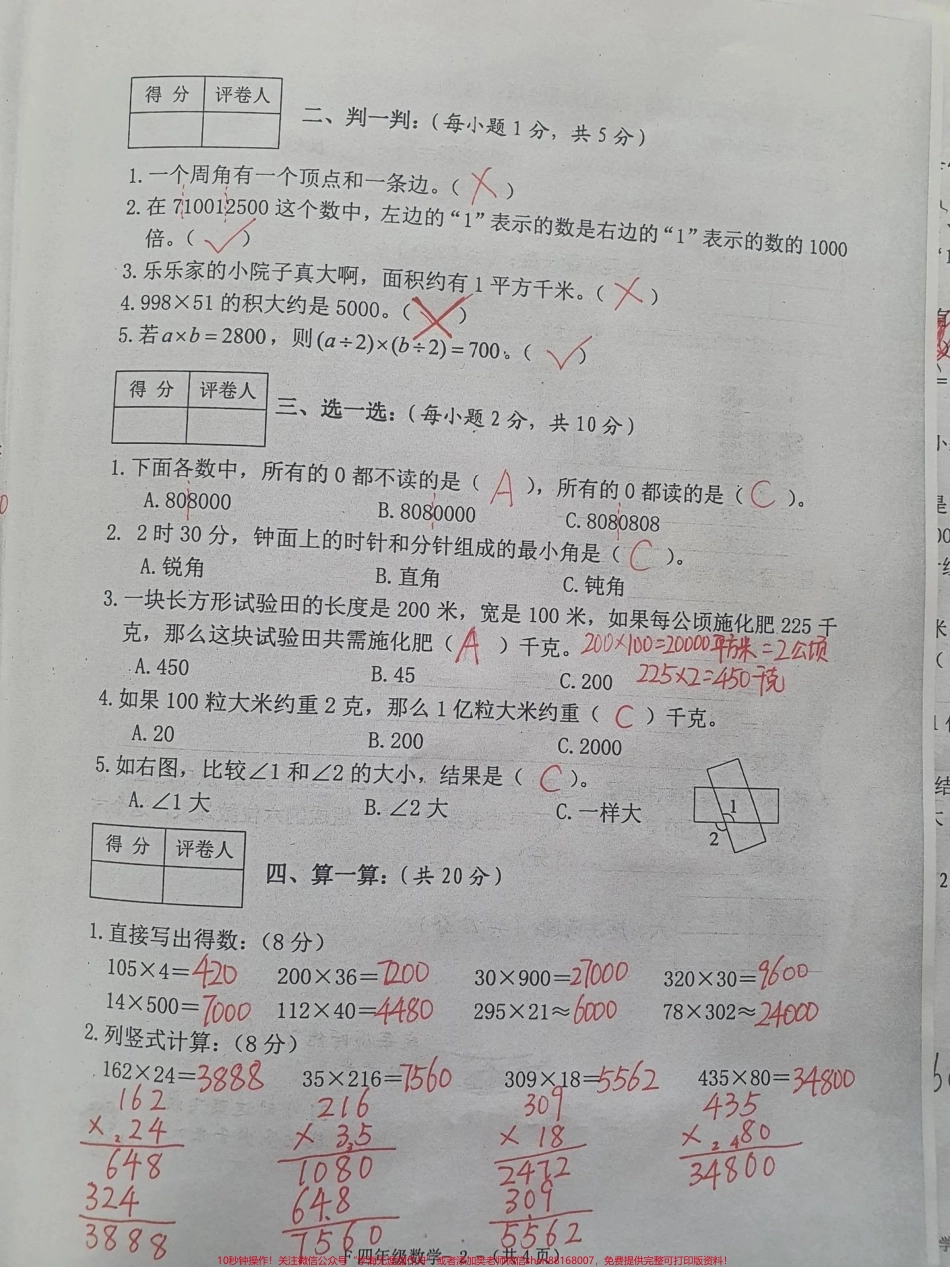 得 分 评卷人
二、判一判:(每小题1分,共5分)
1.一个周角有一个顶点和一条边。( × )
2.在710012500这个数中,左边的“1”表示的数是右边的“1”表示的数的1000
倍。( ✓ )
3.乐乐家的小院子真大啊,面积约有1平方千米。( × )
4.998×51的积大约是5000。( × )
5.若a×b=2800,则(a÷2)×(b÷2)=700。( ✓ )
得 分 评卷人
三、选一选:(每小题2分,共10分)
1.下面各数中,所有的0都不读的是( A ),所有的0都读的是( C )。
A.808000 B.8080000 C.8080808
2. 2时30分,钟面上的时针和分针组成的最小角是( C )。
A.锐角 B.直角 C.钝角
3.一块长方形试验田的长度是200米,宽是100米,如果每公顷施化肥225千
克,那么这块试验田共需施化肥( A )千克。 200×100=20000平方米=2公顷
A.450 B.45 C.200 225×2=450千克
4.如果100粒大米约重2克,那么1亿粒大米约重( C )千克。
A.20 B.200 C.2000
5.如右图,比较∠1和∠2的大小,结果是( C )。
A.∠1大 B.∠2大 C.一样大
1
2
得 分 评卷人
四、算一算:(共20分)
1.直接写出得数:(8分)
105×4=420 200×36=7200 30×900=27000 320×30=9600
14×500=7000 112×40=4480 295×21≈6000 78×302≈24000
2.列竖式计算:(8分)
162×24=3888 35×216=7560 309×18=5562 435×80=34800
162 216 309 435
×24 ×35 ×18 ×80
648 1080 2472 34800
324 648 309
3888 7560 5562
下四年级数学 2 (共4页)